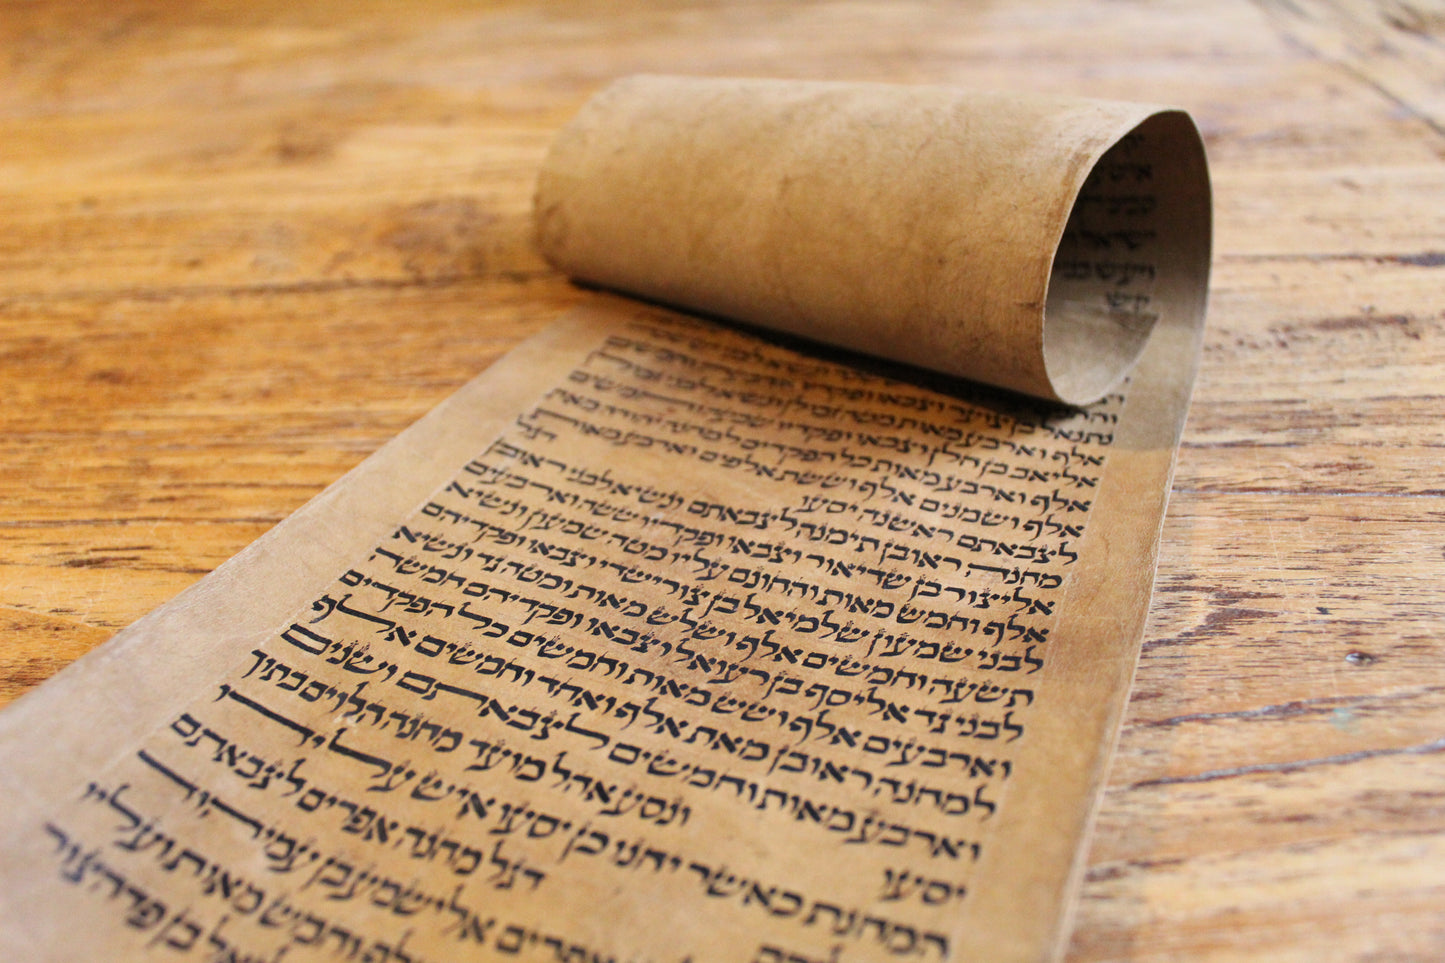 נתנאל בן צוער וצבאו ופקדיו ארבעה וחמשים
אלף וארבע מאות מטה זבולן ונשיא לבני זבולן
אליאב בן חלן וצבאו ופקדיו שבעה וחמשים
אלף וארבע מאות כל הפקדים למחנה יהודה מאת
אלף ושמנים אלף וששת אלפים וארבע מאות
לצבאתם ראשנה יסעו דגל
מחנה ראובן תימנה לצבאתם ונשיא לבני ראובן
אליצור בן שדיאור וצבאו ופקדיו ששה וארבעים
אלף וחמש מאות והחונם עליו מטה שמעון ונשיא
לבני שמעון שלמיאל בן צורישדי וצבאו ופקדיהם
תשעה וחמשים אלף ושלש מאות ומטה גד ונשיא
לבני גד אליסף בן רעואל וצבאו ופקדיהם חמשה
וארבעים אלף ושש מאות וחמשים כל הפקדים
למחנה ראובן מאת אלף ואחד וחמשים אלף
וארבע מאות וחמשים לצבאתם ושנים
יסעו ונסע אהל מועד מחנה הלוים בתוך
המחנת כאשר יחנו כן יסעו איש על ידו
דגל מחנה אפרים לצבאתם
אפרים אלישמע בן עמיהוד
אלף וחמש מאות ועליו
בן פדהצור